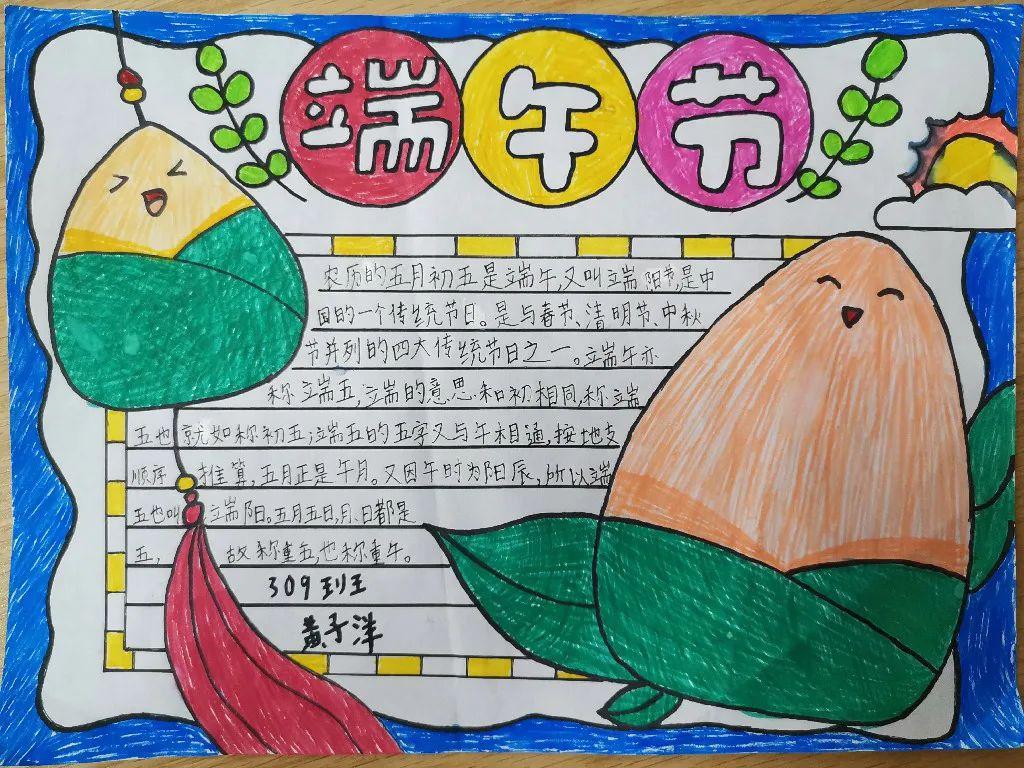 端午节
农历的五月初五是端午,又叫端阳节,是中
国的一个传统节日。是与春节、清明节、中秋
节并列的四大传统节日之一。端午亦
称端五,端的意思和初相同,称端
五也就如称初五;端五的五字又与午相通,按地支
顺序推算,五月正是午月。又因午时为阳辰,所以端
五也叫端阳。五月五日,月、日都是
五,故称重五,也称重午。
309班
黄子洋